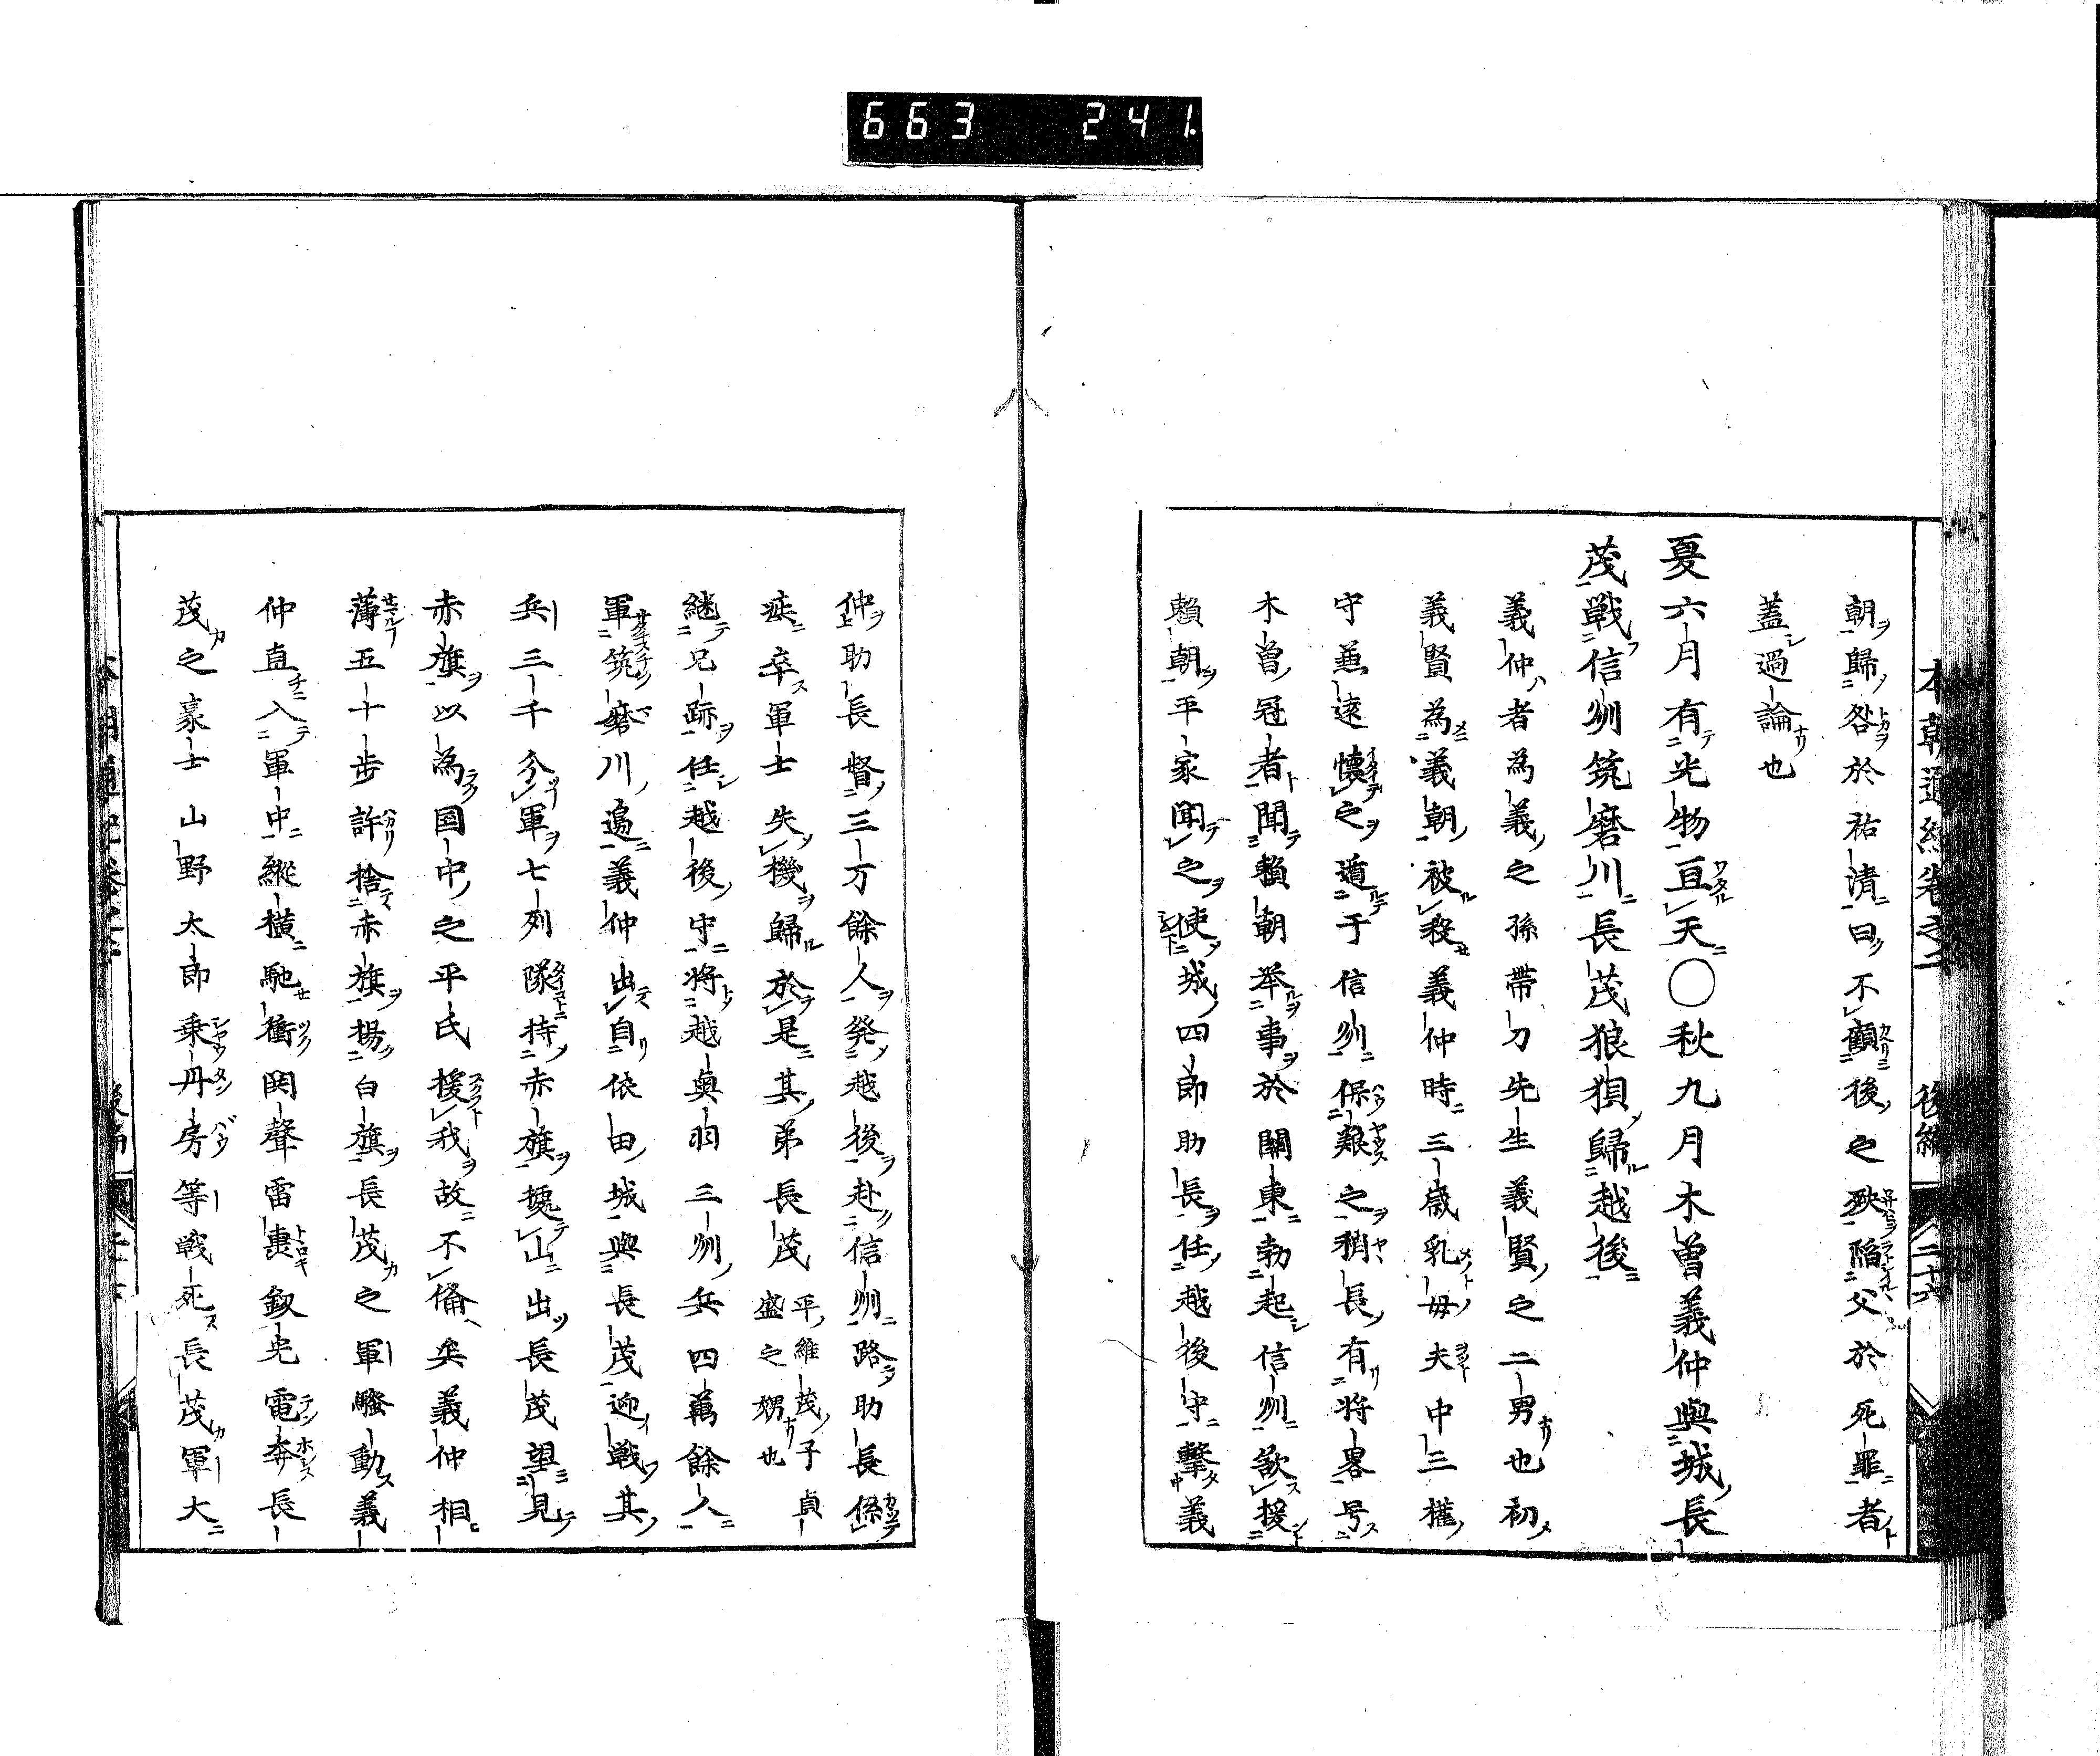 663 241.
本朝通紀卷之二 後編 二十六
朝歸咎於祐清曰不顧後之殃陥父於死罪者
蓋過論也
夏六月有光物亘天○秋九月木曽義仲與城長
茂戦信州筑磨川長茂狼狽歸越後
義仲者為義之孫帯刀先生義賢之二男也初
義賢為義朝被殺義仲時三歳乳母夫中三權
守兼遠懐之遁于信州保艱之稍長有将畧号
木曽冠者聞頼朝举事於關東勃起信州欲援
頼朝平家聞之使城四郎助長任越後守撃義
仲助長督三万餘人発越後赴信州路助長係
疾卒軍士失機歸於是其弟長茂平維茂子貞盛之甥也
継兄跡任越後守将越奥羽三州兵四萬餘人
軍筑磨川邉義仲出自依田城與長茂迎戦其
兵三千分軍七列隊持赤旗遶山出長茂望見
赤旗以為国中之平氏援我故不俻矣義仲相
薄五十歩許捨赤旗揚白旗長茂之軍騒動義
仲直入軍中縦横馳衝鬨聲雷轟釼光電奔長
茂之豪士山野太郎乗丹房等戦死長茂軍大